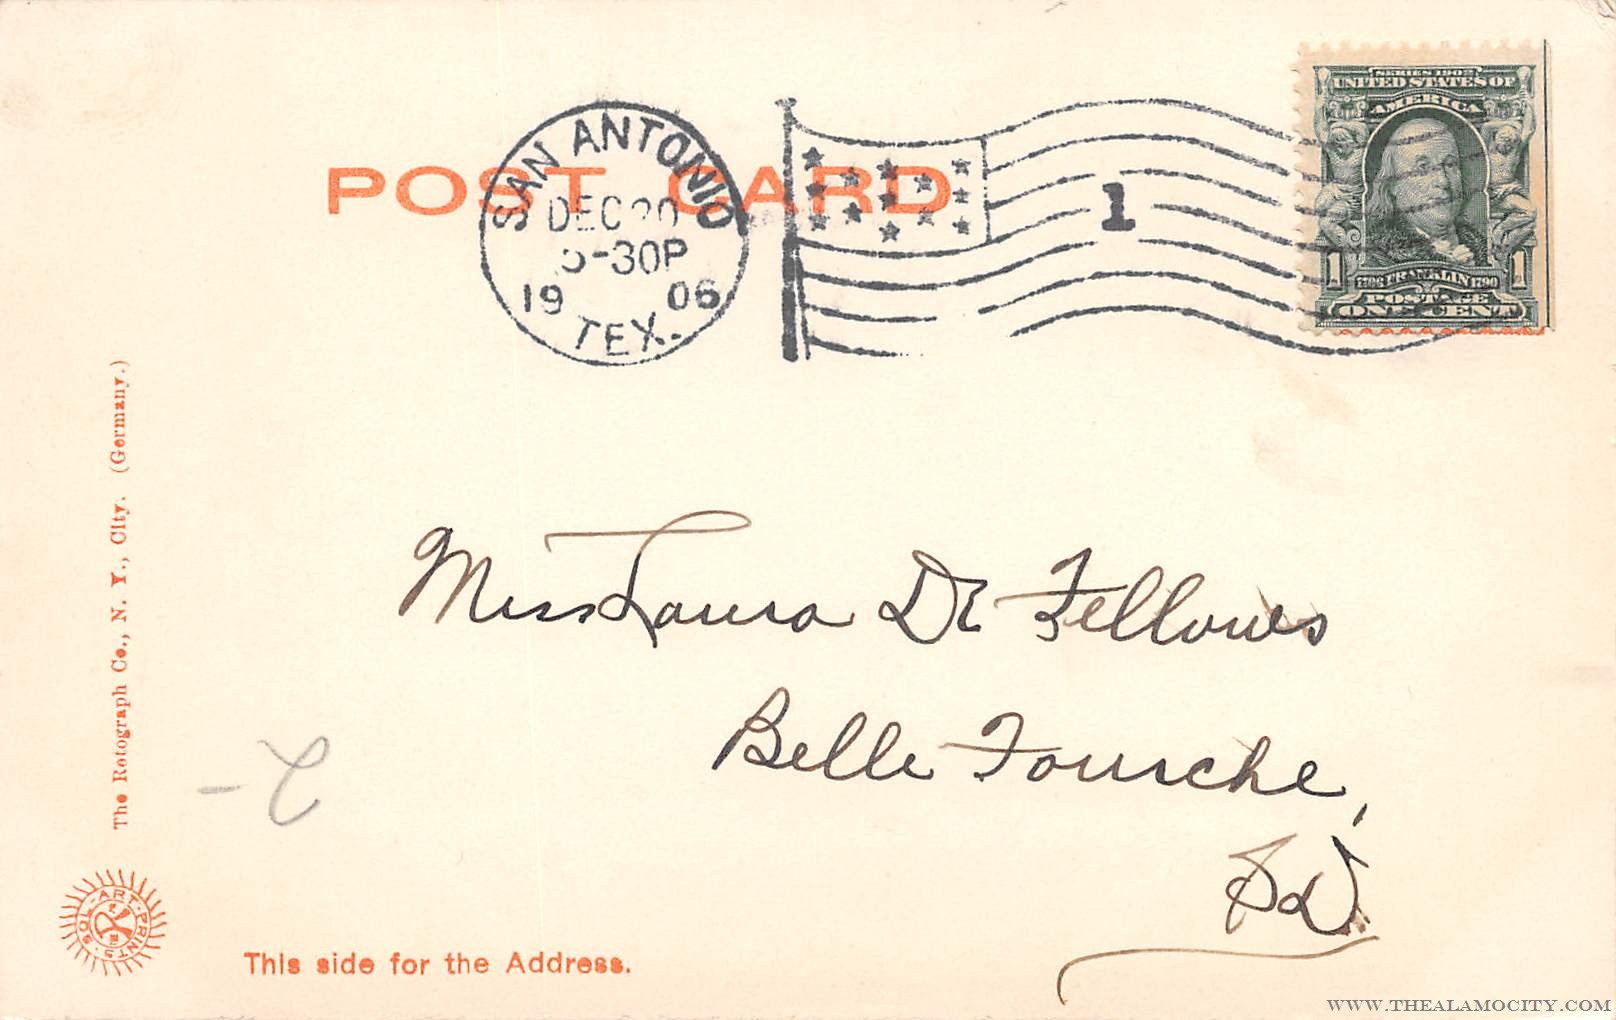 POST CARD
SAN ANTONIO
DEC 20
5-30P
1906
TEX.
1
SERIES 1902
UNITED STATES OF
AMERICA
1706 FRANKLIN 1790
1 1
POSTAGE
ONE CENT
Miss Laura DE Fellows
Belle Fourche,
S.D.
The Rotograph Co., N. Y., City. (Germany.)
SOL-ART-PRINTS
This side for the Address.
WWW.THEALAMOCITY.COM